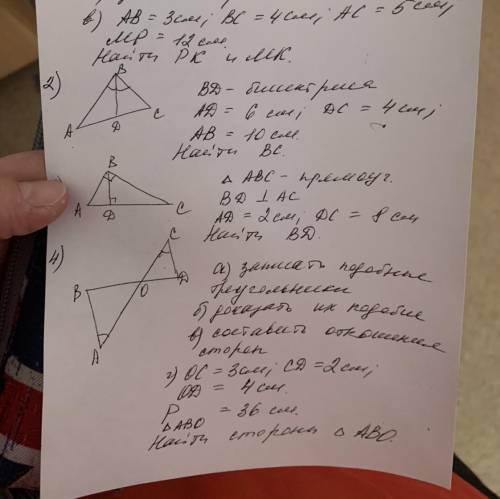 в) AB = 3см; BC = 4см; AC = 5см;
MP = 12см.
Найти PK и MK.
2)
B
A
D
C
BD - биссектриса
AD = 6 см; DC = 4см;
AB = 10см.
Найти BC.
B
A
D
C
△ ABC - прямоуг.
BD ⊥ AC
AD = 2см; DC = 8см
Найти BD.
4)
C
B
O
D
A
а) записать подобные
треугольники
б) доказать их подобие
в) составить отношения
сторон
г) OC = 3см; CD = 2см;
OD = 4см.
P △ABO = 36 см.
Найти стороны △ ABO.